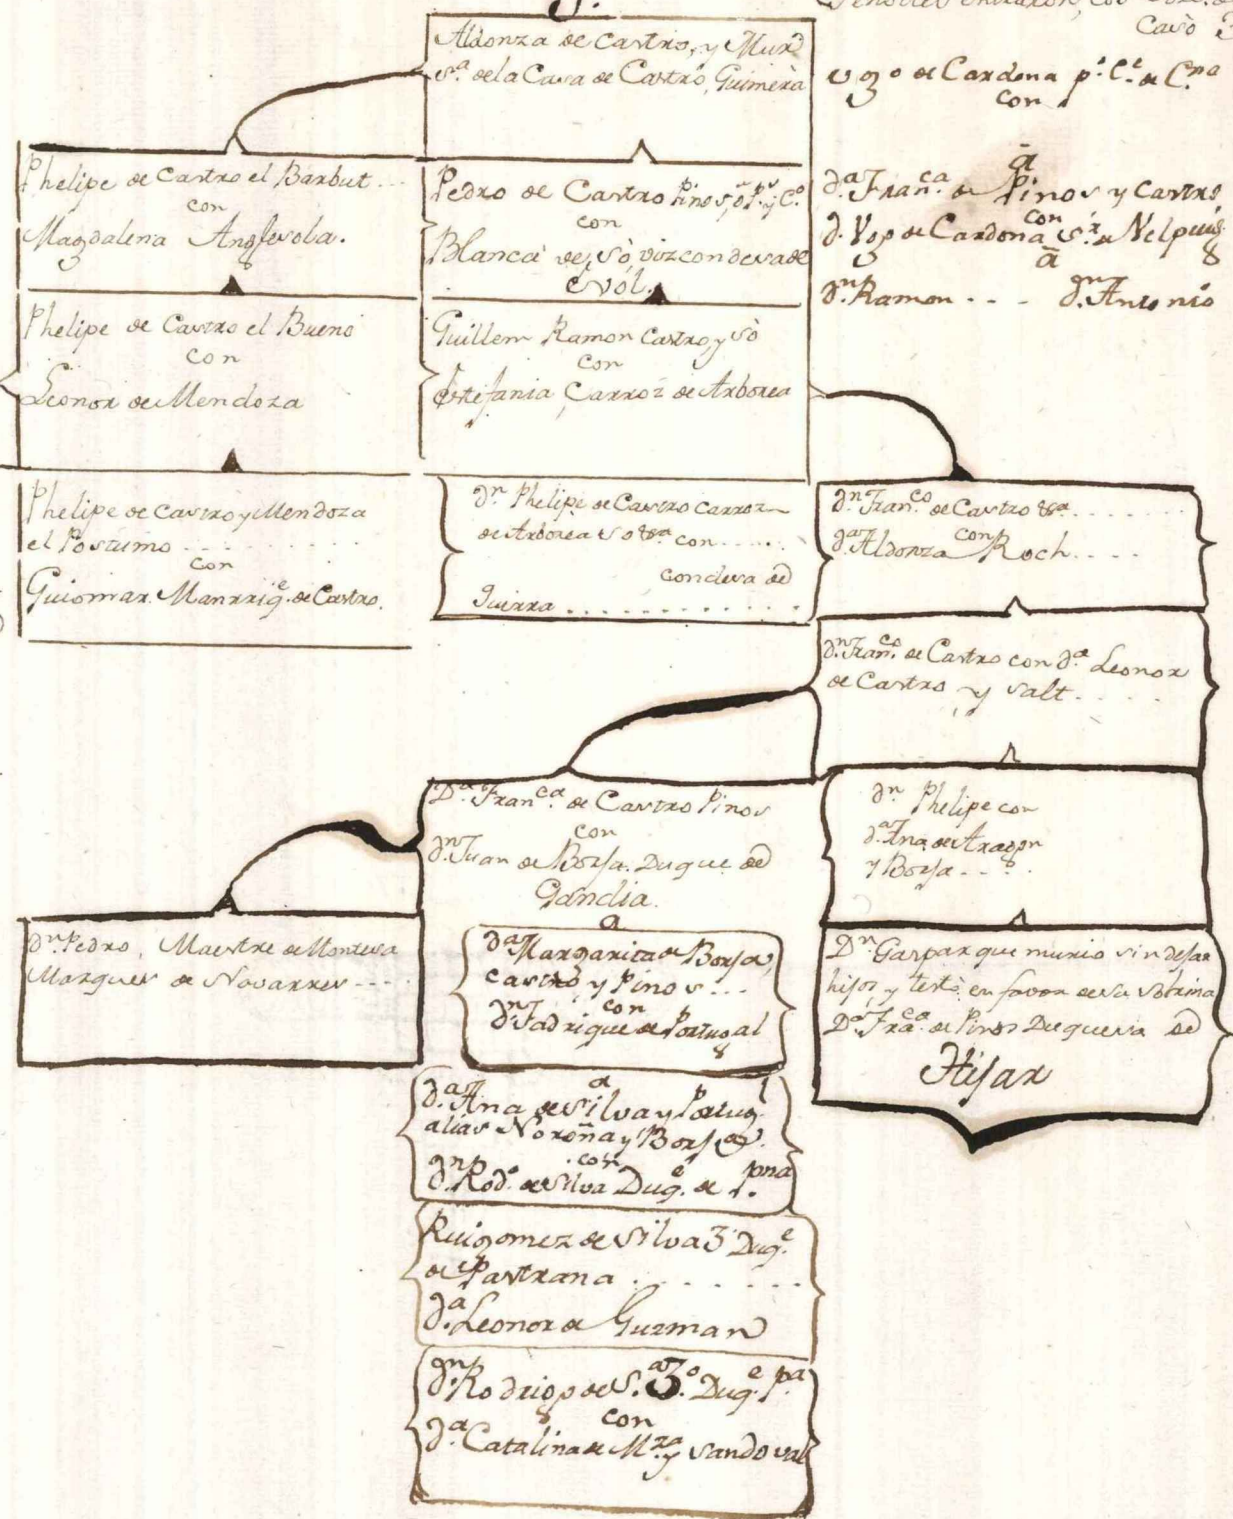 Aldonza de Castro, y Mur
S.ª de la Casa de Castro, Guimerà
Casò 3
Ugo de Cardona p.º C.e de C.na
con
Phelipe de Castro el Barbut...
con
Magdalena Anglesola.
Pedro de Castro Pinos,
con
Blanca de Sò, vizcondesa de
Evol.
a
d.ª Fran.ca de Pinos y Castro,
con
d. Ugo de Cardona S.r de Velpuig
a
d.n Ramon - - - d.n Antonio
Phelipe de Castro el Bueno
con
Leonor de Mendoza
Guillem Ramon Castro, y Sò
con
Estefania Carroz de Arborea
Phelipe de Castro y Mendoza
el Postumo . . . . . . .
con
Guiomar Manrriq.e de Castro.
d.n Phelipe de Castro Carroz
de Arborea Sò &.ª con . . . . .
condesa de
Quirra . . . . . . . . . . . .
d.n Fran.co de Castro &.ª . . . . . . .
con
d.ª Aldonza Roch. . . .
d.n Fran.co de Castro con d.ª Leonor
de Castro, y Salt. . . . .
D.ª Fran.ca de Castro Pinos
con
d.n Juan de Borja. Duque de
Gandia.
d.n Phelipe con
d.ª Ana de Aragon
y Borja - - .
d.n Pedro, Maestre de Montesa
Marques de Navarres - - - -
a
d.ª Margarita de Borja,
Castro y Pinos ...
con
d.n Fadrique de Portugal
D.n Gaspar que murio sin dejar
hijos, y testò en favor de su sobrina
D.ª Fra.ca de Pinos Duquesa de
Hijar
a
d.ª Ana de Silva y Portug.l
alias Noroña y Borja.
con
d.n Rod.o de Silva Duq.e de P.na
Ruigomez de Silva 3º Duq.e
de Pastrana . . . . . . .
d.ª Leonor de Guzman
d.n Rodrigo de S.ª 3.º Duq.e P.ª
con
d.ª Catalina de M.za y Sandoval